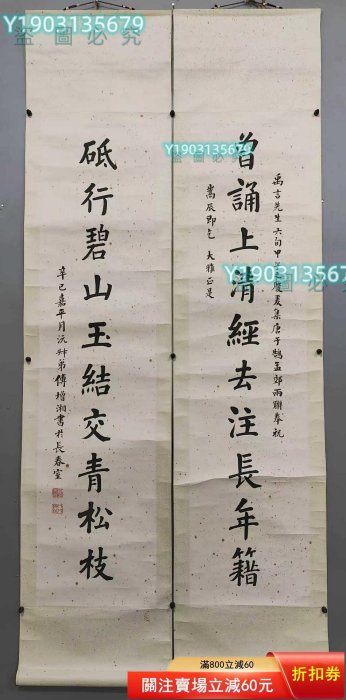 Y1903135679
盜圖必究
Y1903135679
盜圖必究
Y1903135679
Y1903135679
禹言先生六旬甲慶爰集唐于鵠孟郊兩聯奉祝
曾誦上清經去注長年籍
嵩辰即乞 大雅正是
砥行碧山玉結交青松枝
辛巳嘉平月沅叔弟傅增湘書於長春室
滿800立減60
關注賣場立減60元
折扣券